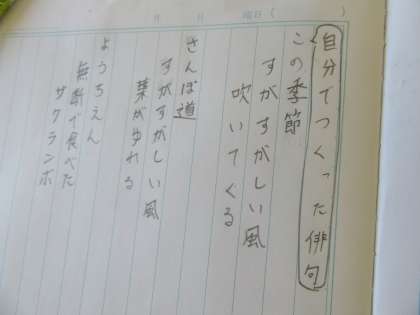 月 月 曜日( )
自分でつくった俳句
この季節
すがすがしい風
吹いてくる
さんぽ道
すがすがしい風
葉がゆれる
ようちえん
無断で食べた
サクランボ